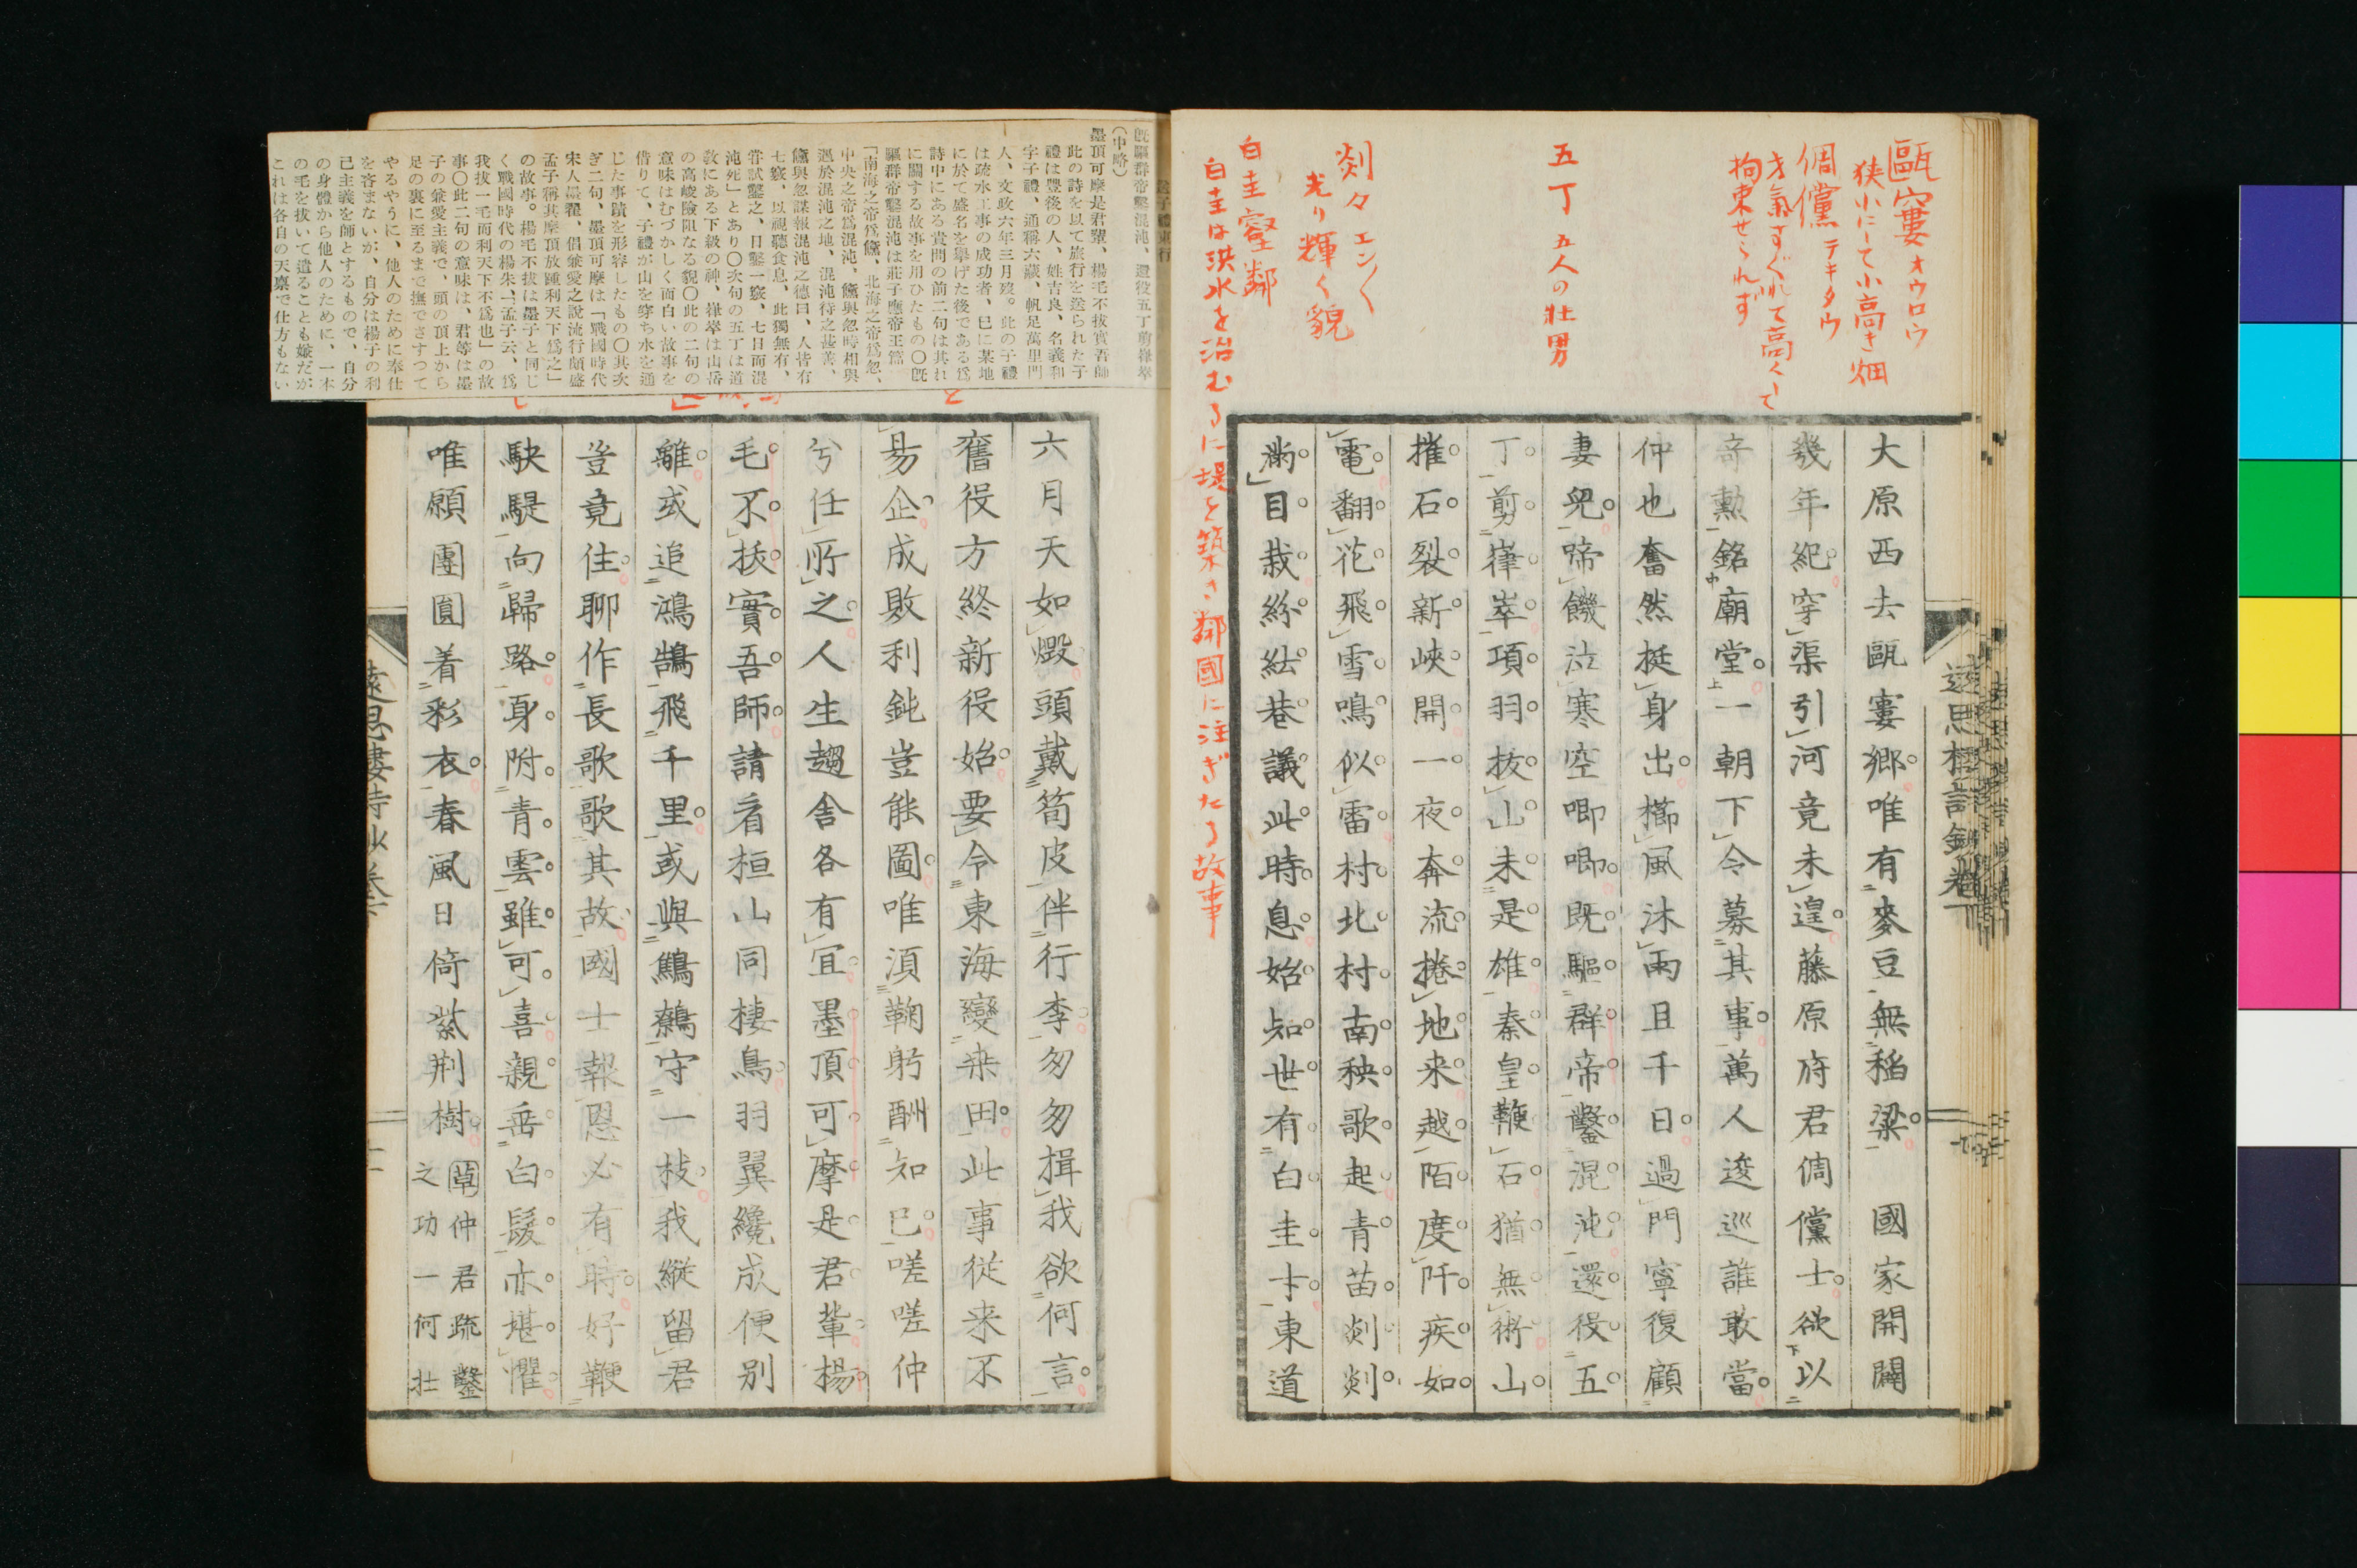 甌窶 オウロウ
狭小にして小高き畑
倜儻 テキタウ
才氣すぐれて高くして
拘束せられず
五丁 五人の壮男
剡々 エン〱
光り輝く貌
白圭壑鄰
白圭は洪水を治むるに堤を築き鄰國に注ぎたる故事
大原西去甌窶鄉唯有麥豆無稻粱 國家開闢
幾年紀穿渠引河竟未遑藤原府君倜儻士欲以
竒勳銘廟堂一朝下令募其事萬人逡巡誰敢當
仲也奮然挺身出櫛風沐雨且千日過門寧復顧
妻兒啼饑泣寒空唧唧既驅群帝鑿混沌還役五
丁剪嵂崒項羽拔山未是雄秦皇鞭石猶無術山
摧石裂新峽開一夜奔流捲地来越陌度阡疾如
電翻花飛雪鳴似雷村北村南秧歌起青苗剡剡
滿目栽紛紜巷議此時息始知世有白圭才東道
六月天如燬頭戴筍皮伴行李匆匆揖我欲何言
舊役方終新役始要令東海變桒田此事従来不
易企成敗利鈍豈能圖唯湏鞠躬酬知已嗟嗟仲
兮任所之人生趨舍各有宜墨頂可摩是君輩楊
毛不拔實吾師請看桓山同棲鳥羽翼纔成便別
離或追鴻鵠飛千里或與鷦鷯守一枝我縱留君
豈竟住聊作長歌歌其故國士報恩必有時好鞭
駃騠向歸路身附青雲雖可喜親垂白髮亦堪懼
唯願團圓着彩衣春風日倚紫荆樹
草仲君疏鑿
之功一何壮
遠思樓詩鈔卷下
既驅群帝鑿混沌、還役五丁剪嵂崒
(中略)
墨頂可摩是君輩、楊毛不拔實吾師
此の詩を以て旅行を送られた子
禮は豊後の人、姓吉良、名義和
字子禮、通稱六藏、帆足萬里門
人、文政六年三月歿。此の子禮
は疏水工事の成功者、巳に某地
に於て盛名を擧げた後である爲
詩中にある貴問の前二句は其れ
に關する故事を用ひたもの〇旣
驅群帝鑿混沌は莊子應帝王篇
「南海之帝爲儵、北海之帝爲忽、
中央之帝爲混沌、儵與忽時相與
遇於混沌之地、混沌待之甚善、
儵與忽謀報混沌之德曰、人皆有
七竅、以視聽食息、此獨無有、
甞試鑿之、日鑿一竅、七日而混
沌死」とあり〇次句の五丁は道
敎にある下級の神、嵂崒は山岳
の高峻險阻なる貌〇此の二句の
意味はむづかしく而白い故事を
借りて、子禮が山を穿ち水を通
じた事蹟を形容したもの〇其次
ぎ二句、墨頂可摩は「戰國時代
宋人墨翟、倡兼愛之說流行頗盛
孟子稱其摩頂放踵利天下爲之」
の故事。楊毛不拔は墨子と同じ
く戰國時代の楊朱、「孟子云、爲
我拔一毛而利天下不爲也」の故
事〇此二句の意味は、君等は墨
子の兼愛主義で、頭の頂上から
足の裏に至るまで撫でさすつて
やるやうに、他人のために奉仕
を吝まないが、自分は楊子の利
己主義を師とするもので、自分
の身體から他人のために、一本
の毛を拔いて遣ることも嫌だが
これは各自の天禀で仕方もない